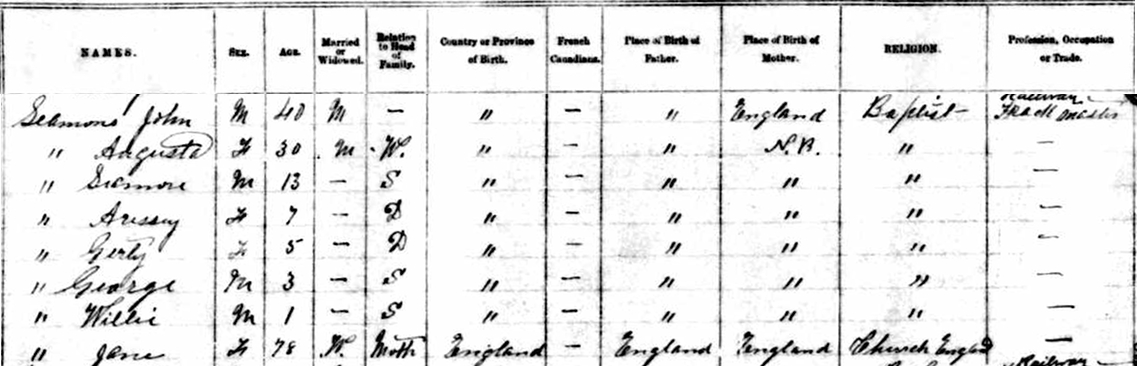 NAMES. SEX. AGE. Married or Widowed. Relation to Head of Family. Country or Province of Birth. French Canadians. Place of Birth of Father. Place of Birth of Mother. RELIGION. Profession, Occupation or Trade.
Seamons John M 40 M — " — " England Baptist Railway Track Master
" Augusta F 30 M W. " — " N.B. " —
" M 13 — S " — " " " —
" F 7 — D " — " " " —
" Gerty F 5 — D " — " " " —
" George M 3 — S " — " " " —
" Willie M 1 — S " — " " " —
" Jane F 78 W. Moth England — England England Church England —
Railway